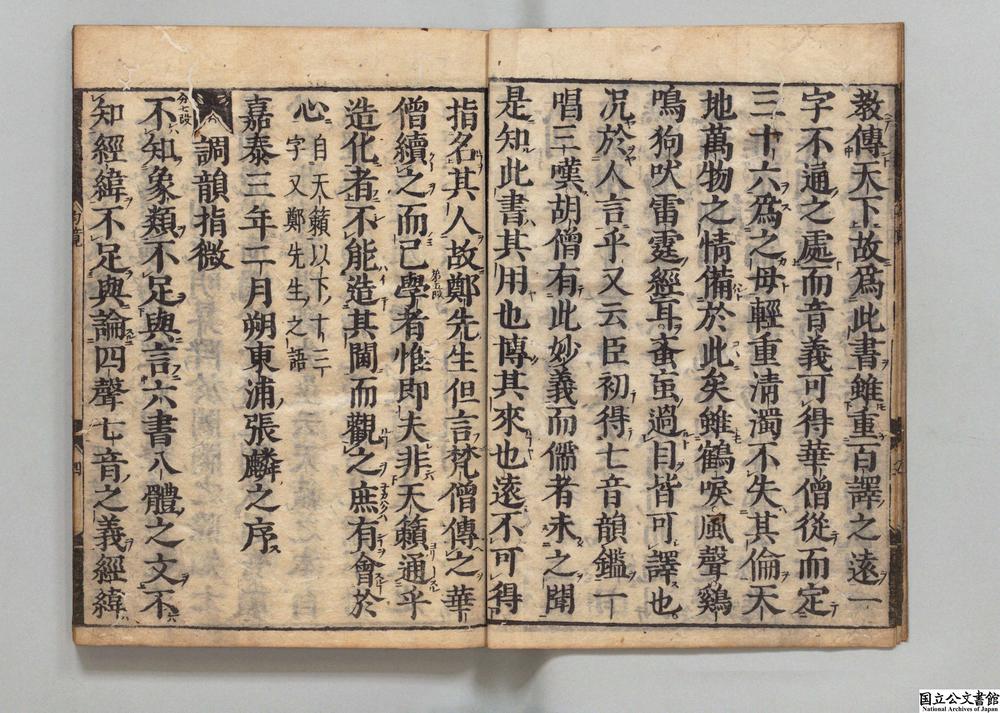 教傳天下故爲此書雖重百譯之遠一
字不通之處而音義可得華僧從而定
三十六爲之母輕重清濁不失其倫天
地萬物之情備於此矣雖鶴唳風聲雞
鳴狗吠雷霆經耳蚉䖟過目皆可譯也
况於人言乎又云臣初得七音韻鑑一
唱三嘆胡僧有此妙義而儒者未之聞
是知此書其用也博其來也遠不可得
指名其人故鄭先生但言梵僧傳之華
僧續之而已學者惟即夫非天籟通乎
造化者不能造其閫而觀之庶有會於
心 自天籟以下十三
字又鄭先生之語
嘉泰三年二月朔東浦張麟之序
調韻指微
不知象類不足與言六書八體之文不
知經緯不足與論四聲七音之義經緯
四
国立公文書館
National Archives of Japan